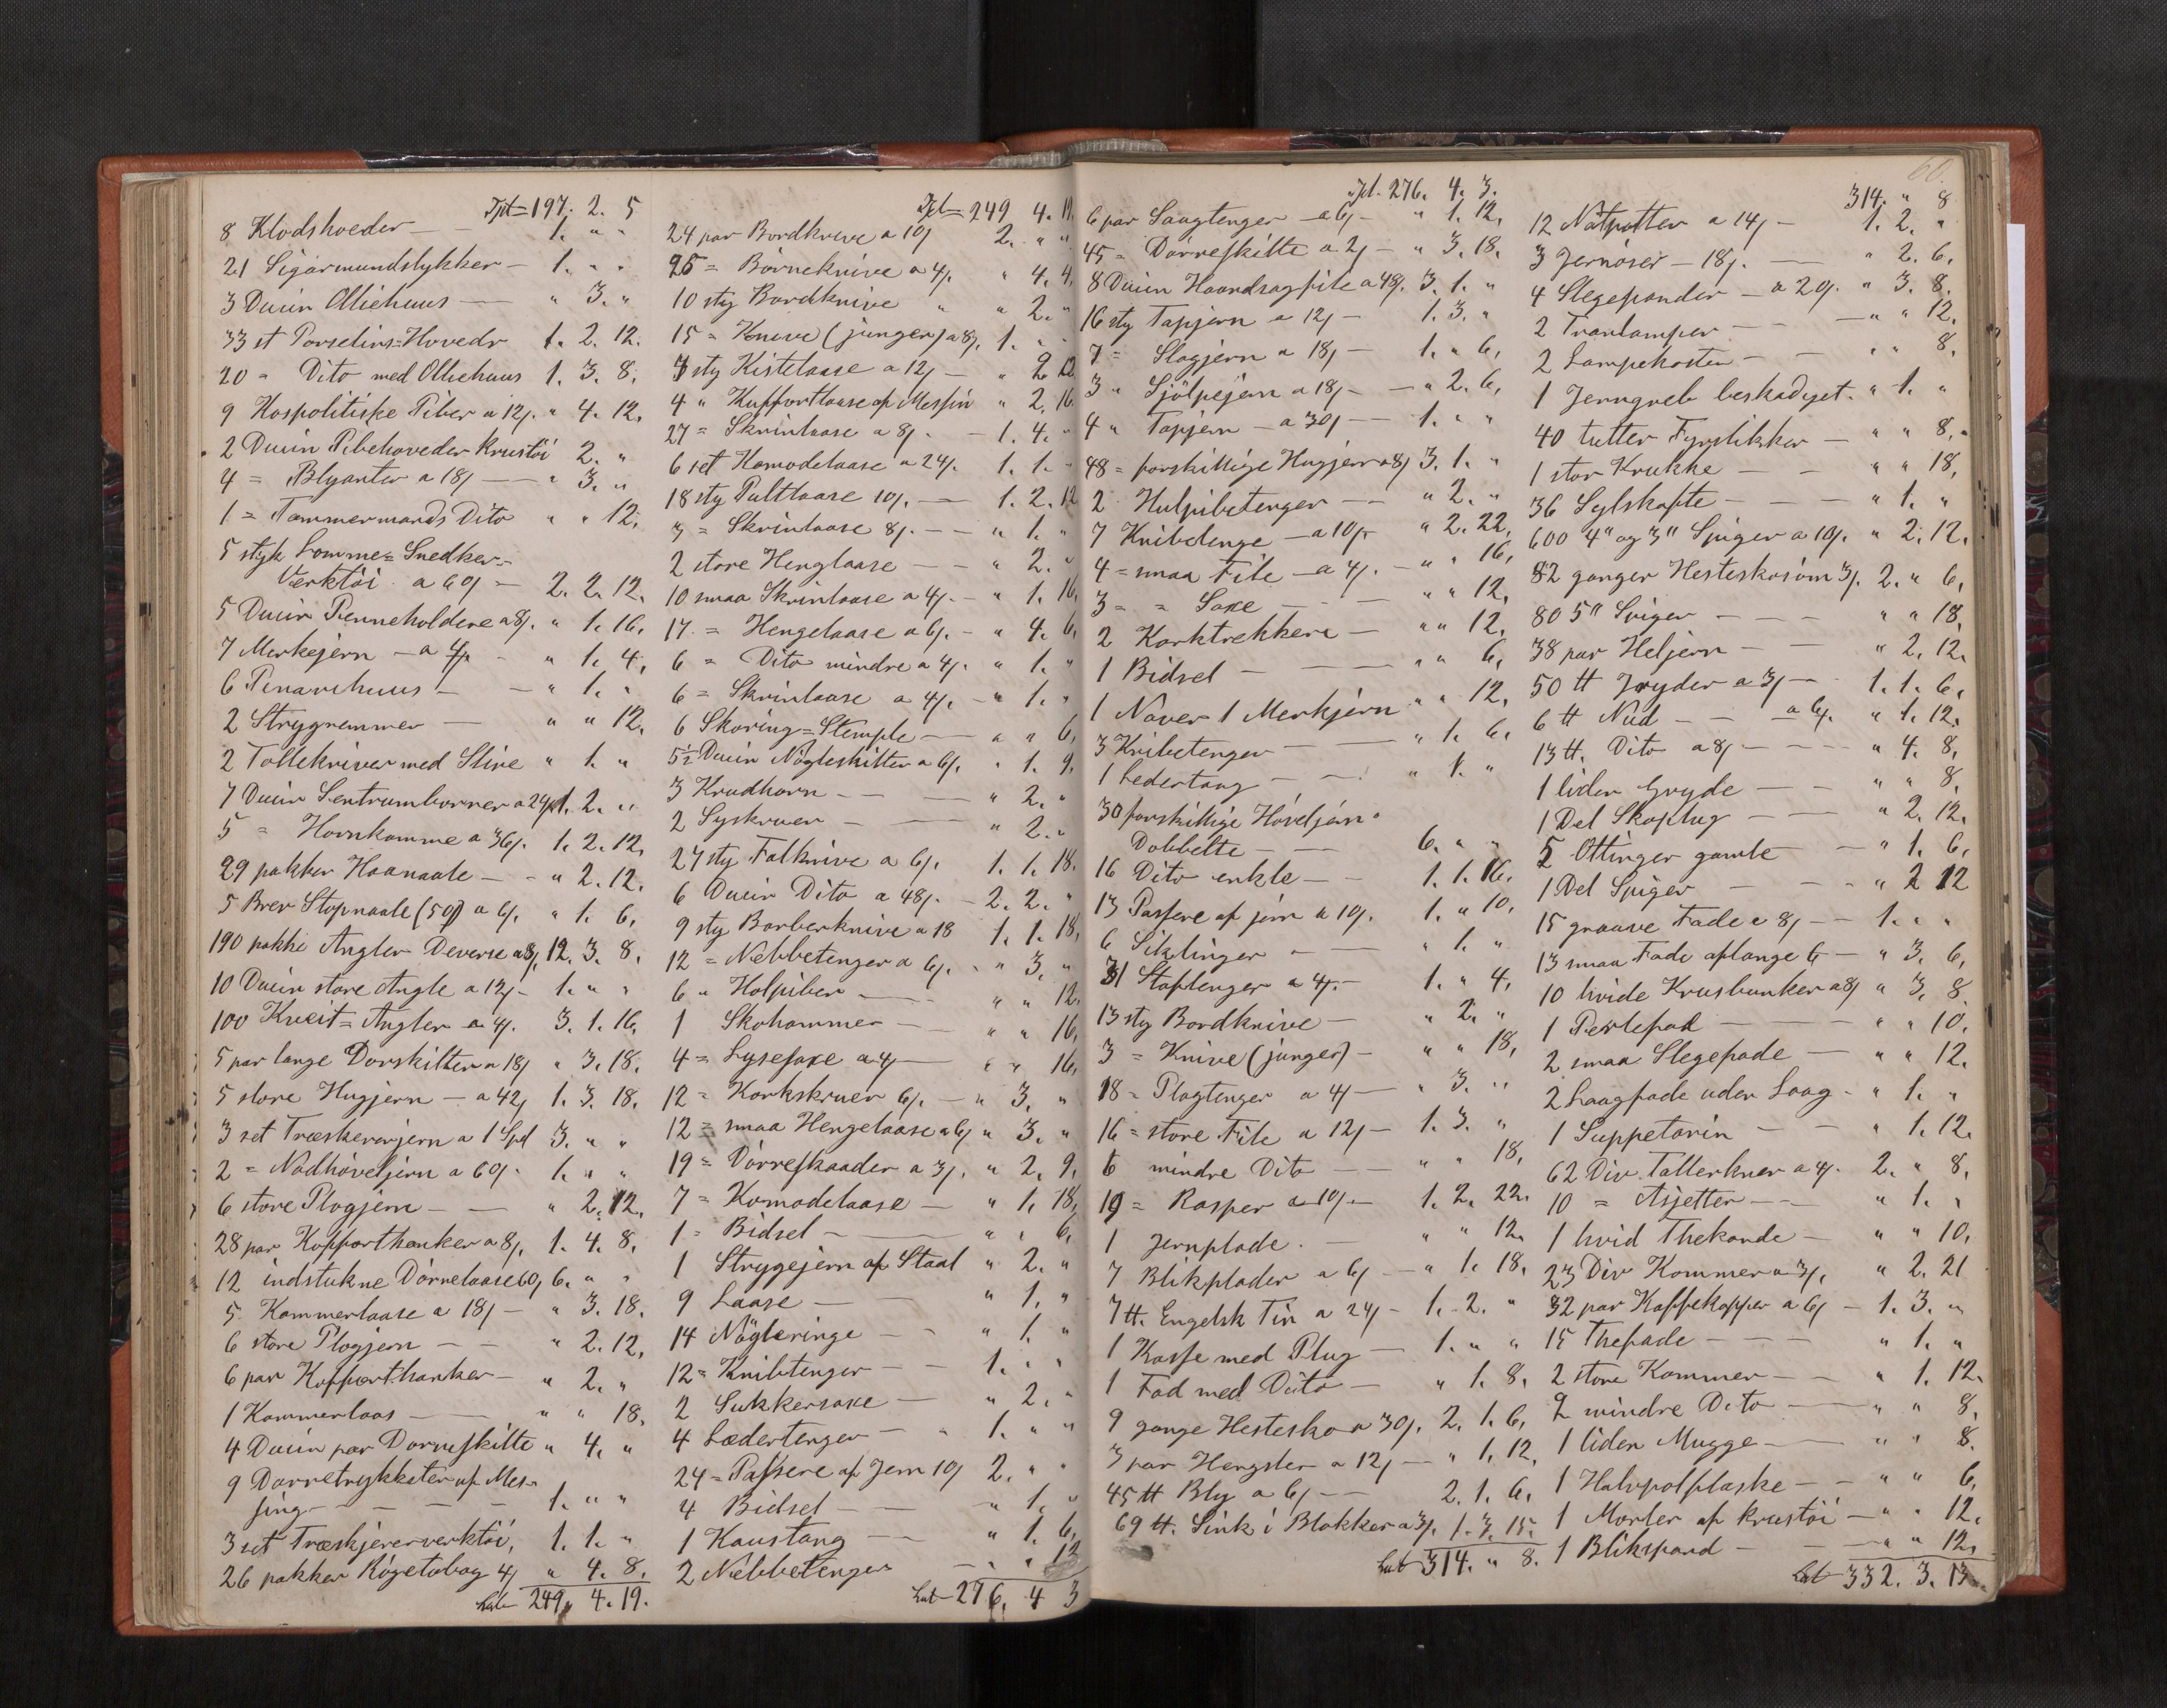 Tpt = 197. 2. 5
8 Klodshoeder — 1. " "
21 Sigarmundstykker — 1. " "
3 Dusin Olliehuus — " 3. "
33 st Porselins=Hoveder 1. 2. 12.
20 " Dito med Olliehuus 1. 3. 8.
9 Kospolitiske Piber a 12ß. " 4. 12.
2 Dusin Pibehoveder Krustöi 2. "
4 = Blyanter a 18ß — " 3. "
1 = Tømmermands Dito " " 12.
5 styk Lomme=Snedker=
Værktöi a 60ß — 2. 2. 12.
5 Dusin Penneholdere a 8ß. " 1. 16.
7 Merkejern — a 4ß. — " 1. 4.
6 Penarehuus — " 1. "
2 Strygremmer — " " 12.
2 Tollekniver med Slire " 1. "
7 Dusin Sentrumborner a 24ß 1. 2. "
5 = Hornkamme a 36ß. 1. 2. 12.
29 pakker Haarnaale — " 2. 12.
5 Brev Stopnaale (50) a 6ß. " 1. 6.
190 pakke Angler Deverse a 8ß. 12. 3. 8.
10 Dusin store Angle a 12ß — 1. " "
100 Kveit=Angler a 4ß. 3. 1. 16.
5 par lange Dorskilter a 18ß " 3. 18.
5 store Hugjern — a 42ß 1. 3. 18.
3 set Træskererjern a 1 Spd 3. " "
2 = Nodhöveljern a 60ß. 1. " "
6 store Plogjern — " 2. 12.
28 par Kofforthanker a 8ß. 1. 4. 8.
12 indstukne Dörrelaase 60ß 6. " "
5 Kammerlaase a 18ß — " 3. 18.
6 store Plogjern — " 2. 12.
6 par Kofforthanker — " 2. "
1 Kammerlaas — " " 18.
4 Dusin par Dorreskilte " 4. "
9 Dorretrykkster af Mes=
sing — 1. " "
3 set Træskjererverktöi, 1. 1. "
26 pakker Rögetobag 4ß " 4. 8.
Lat 249. 4. 19.
Tpt = 249 4. 19
24 par Bordknive a 10ß 2. " "
25 = Börneknive a 4ß. " 4. 4.
10 sty Bordknive " " 2. "
15 = Knive (junger) a 8ß. 1. " "
7 sty Kistelaase a 12ß — " 2. 12
4 " Kuffortlaase af Messin " 2. 16.
27 = Skrinlaase a 8ß. — 1. 4. "
6 set Komodelaase a 24ß. 1. 1. "
18 sty Pultlaase 10ß. — 1. 2. 12
3 = Skrinlaase 8ß. — " 1. "
2 store Henglaase — " 2. "
10 smaa Skrinlaase a 4ß. — " 1. 16.
17 = Hengelaase a 6ß. — " 4. 6.
6 = Dito mindre a 4ß. " 1. "
6 = Skrinlaase a 4ß. — " 1. "
6 Skoring=Stemple — " " 6.
5½ Dusin Nögleskilter a 6ß. " 1. 9.
3 Krudhorn — " 2. "
2 Syskruer — " 2. "
27 sty Falknive a 6ß. 1. 1. 18.
6 Dusin Dito a 48ß. — 2. 2. "
9 sty Barberknive a 18 1. 1. 18.
12 = Nebbetenger a 6ß. " 3. "
6 " Holpiber — " " 12.
1 Skohammer — " " 16.
4 = Lysesaxe a 4ß — " " 16.
12 = Korkskruer 6ß. — " 3. "
12 = smaa Hengelaase a 6ß " 3. "
19 = Dörreskaader a 3ß. " 2. 9.
7 = Komodelaase — " 1. 18.
1 = Bidsel — " " 6.
1 Strygejern af Staal " 2. "
9 Laase — " 1. "
14 Nögleringe — " 1. "
12 = Knibtenger — 1. " "
2 Sukkersaxe — " 2. "
4 Lædertenger — " 1. " "
24 = Passere af Jern 10ß 2. " "
4 Bidsel — " 1. "
1 Haustang — " 1. 6.
2 Nebbetenger — " " 12
Lat 276. 4 3
Tpt. 276. 4. 3.
6 par Saagtenger — a 6ß — " 1. 12.
45 = Dörreskilte a 2ß — " 3. 18.
8 Dusin Haandsagfile a 48ß. 3. 1. "
16 sty Tapjern a 12ß — 1. 3. "
7 = Slagjern a 18ß — 1. " 6.
3 " Sjölpejern a 18ß — " 2. 6.
4 " Tapjern — a 30ß — 1. " "
48 = forskillige Hugjern a 8ß 3. 1. "
2 Hulpibetenger — " 2. "
7 Knibelenge — a 10ß " 2. 22.
4 = smaa File — a 4ß. — " " 16.
3 = " Saxe — " " 12.
2 Korktrekkere — " " 12.
1 Bidsel — " " 6.
1 Naver 1 Merkjern " " 12.
3 Knibetenger — " 1. 6.
1 Ledertang — " 1. "
30 forskillige Höveljærn
Dobbelte — 6. " "
16 Dito enkle — 1. 1. 16.
13 Passere af jern a 10ß. 1. " 10.
6 Siklinger — " 1. "
31 Staplenger a 4ß. — 1. " 4.
13 sty Bordknive — " 2. "
3 = Knive (junger) — " " 18.
18 = Plagtenger a 4ß — " 3. "
16 = store File a 12ß — 1. 3. "
6 mindre Dito — " " 18.
19 = Rasper a 10ß — 1. 2. 22.
1 Jernplade. — " " 12.
7 Blikplader a 6ß — " 1. 18.
7 tt. Engelsk Tin a 24ß — 1. 2. "
1 Kasse med Plug — 1. " "
1 Fad med Dito — " 1. 8.
9 gange Hestesko a 30ß. 2. 1. 6.
3 par Hengsler a 12ß — " 1. 12.
45 tt Bly a 6ß — 2. 1. 6.
69 tt. Sink i Blokker a 3ß. 1. 3. 15.
Lat 314. " 8.
60.
314. " 8
12 Natpotter a 14ß — 1. 2. "
3 Jernöser — 18ß. — " 2. 6.
4 Stegepander — a 20. " 3. 8.
2 Tranlamper — " " 12.
2 Lampekosten — " " 8.
1 Jerngreb beskadiget. " 1. "
40 tutter Fyrstikker — " " 8.
1 stor Krukke — " " 18.
36 Sylskafte — " 1. "
600 4" og 3" Spiger a 10ß. " 2. 12.
82 ganger Hesteskosöm 3ß. 2. " 6.
80 5" Spiger — " " 18.
38 par Heljern — " 2. 12.
50 tt Gryder a 3ß — 1. 1. 6.
6 tt Nud — a 6ß. " 1. 12.
13 tt. Dito a 8ß — " 4. 8.
1 liden Gryde — " " 8.
1 Del Skoplug — " 2. 12.
5 Ottinger gamle — " 1. 6.
1 Del Spiger — " 2 12
15 graave Fade a 8ß — 1. " "
13 smaa Fade aflange 6 — " 3. 6.
10 hvide Krusbunker a 8ß " 3. 8.
1 Perlefad — " " 10.
2 smaa Stegefade — " " 12.
2 Laagfade uden Laag — " 1. "
1 Suppetarin — " 1. 12.
62 Div. Tallerkner a 4ß. 2. " 8.
10 = Asjetter — " 1. "
1 hvid Thekande — " " 10.
23 Div Kommer a 3ß. " 2. 21
32 par Kaffekopper a 6ß — 1. 3. "
15 Thefade — " 1. "
2 store Kommer — " 1. 12.
2 mindre Dito — " " 8.
1 liden Mugge — " " 8.
1 Halvpotflaske — " " 6.
1 Morter af krustöi — " " 12.
1 Blikspand — " " 12.
Lat 332. 3. 13.